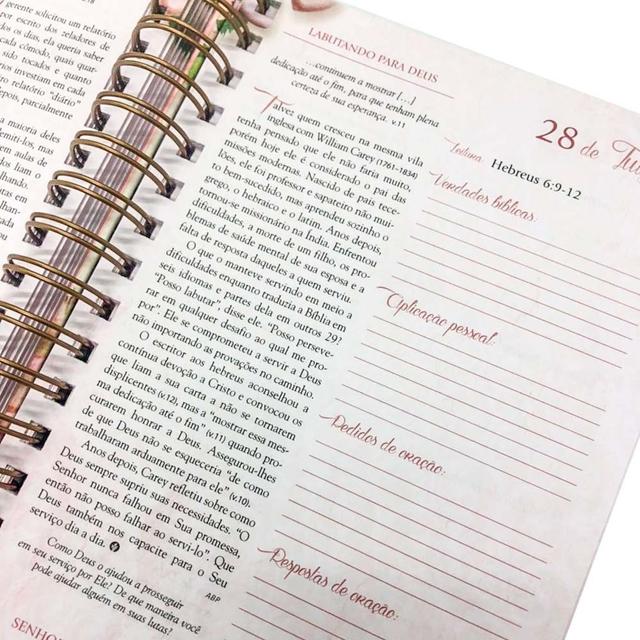 gerente solicitou um relatório
por escrito dos zeladores de
os os dias, ela queria saber
cada cômodo, quais quar-
sido tocados e quanto
rios investiam em cada
ro relatório "diário"
depois, parcialmente
a maioria deles
em aulas de
LABUTANDO PARA DEUS
...continuem a mostrar [...]
dedicação até o fim, para que tenham plena
certeza de sua esperança. v.11
Talvez quem cresceu na mesma vila
inglesa com William Carey (1761–1834)
tenha pensado que ele não faria muito,
porém hoje ele é considerado o pai das
missões modernas. Nascido de pais tece-
lões, ele foi professor e sapateiro não mui-
to bem-sucedido, mas aprendeu sozinho o
grego, o hebraico e o latim. Anos depois,
tornou-se missionário na Índia. Enfrentou
dificuldades, a morte de um filho, os pro-
blemas de saúde mental de sua esposa e a
falta de resposta daqueles a quem serviu.
O que o manteve servindo em meio a
dificuldades enquanto traduzia a Bíblia em
seis idiomas e partes dela em outros 29?
"Posso labutar", disse ele. "Posso perseve-
rar em qualquer desafio ao qual me pro-
por". Ele se comprometeu a servir a Deus
não importando as provações no caminho.
O escritor aos hebreus aconselhou a
contínua devoção a Cristo e convocou os
que liam a sua carta a não se tornarem
displicentes (v.12), mas a "mostrar essa mes-
ma dedicação até o fim" (v.11) quando pro-
curarem honrar a Deus. Assegurou-lhes
de que Deus não se esqueceria "de como
trabalharam arduamente para ele" (v.10).
Anos depois, Carey refletiu sobre como
Deus sempre supriu suas necessidades. "O
Senhor nunca falhou em Sua promessa,
então não posso falhar ao servi-lo". Que
Deus também nos capacite para o Seu
serviço dia a dia.
ABP
Como Deus o ajudou a prosseguir
em seu serviço por Ele? De que maneira você
pode ajudar alguém em suas lutas?
28 de
Leitura: Hebreus 6:9-12
Verdades bíblicas:
Aplicação pessoal:
Pedidos de oração:
Respostas de oração: